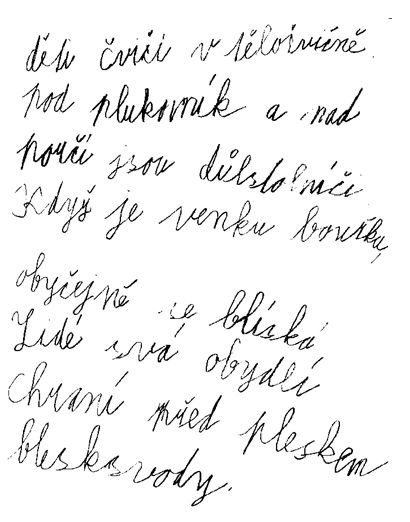 děti čviči v těločvičně
pod plukovník a nad
poručí jsou důlstolníči
Kdyš je venku bouřku,
obyčejně se blíská
Lidé svá obydlí
chraní před pleskem
bleskosvody.